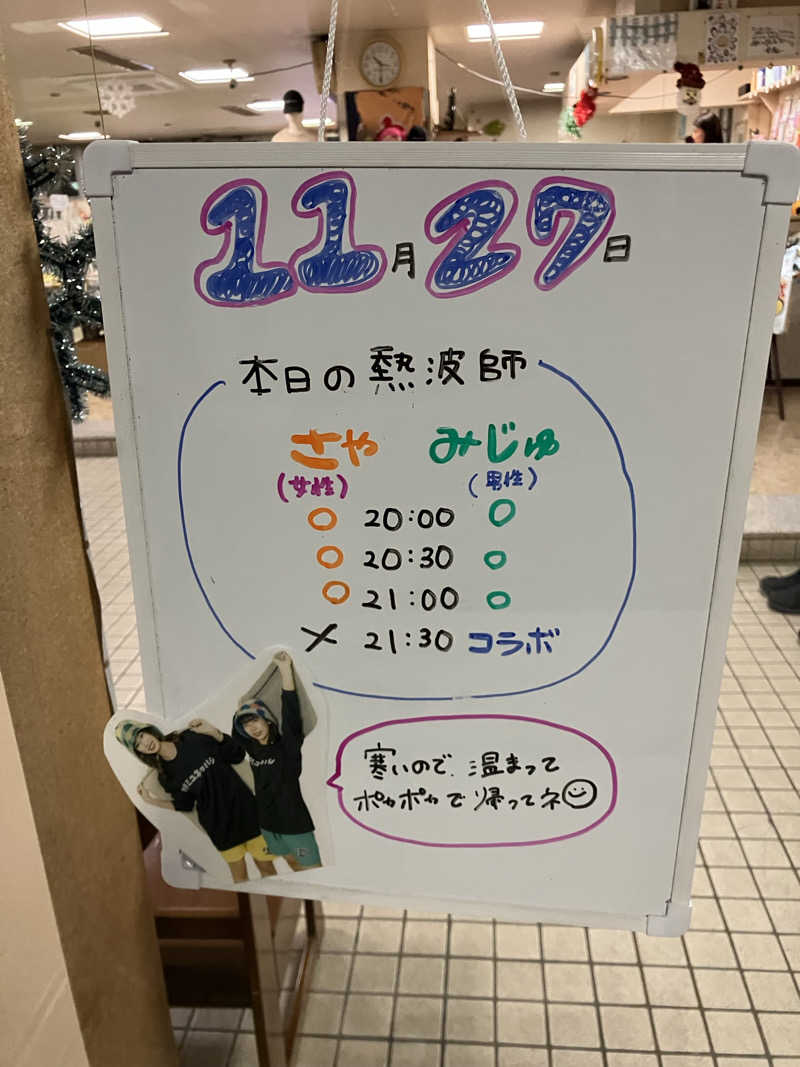 11月27日
本日の熱波師
さや みじゅ
(女性) (男性)
○ 20:00 ○
○ 20:30 ○
○ 21:00 ○
× 21:30 コラボ
寒いので、温まって
ポカポカで帰ってネ